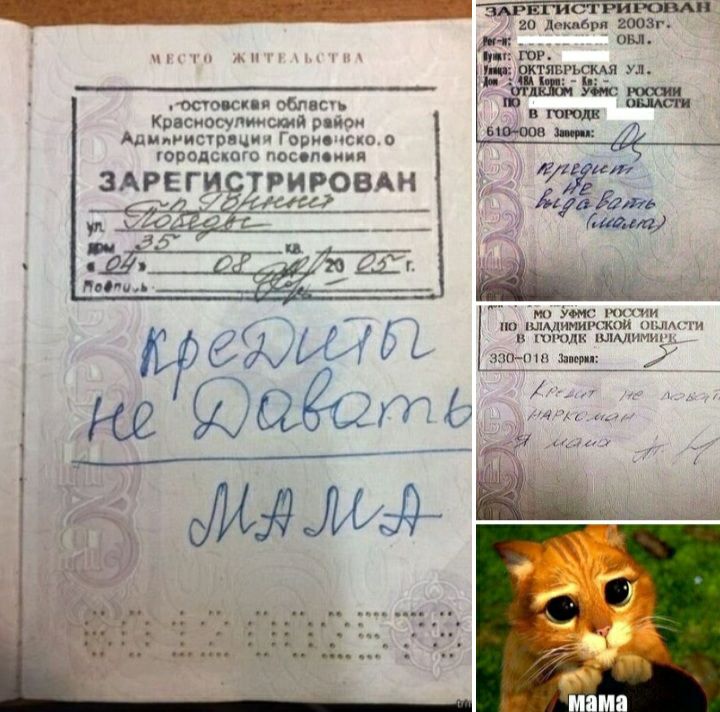 МЕСТО ЖИТЕЛЬСТВА
остовская область
Красносулинский район
Администрация Горненско.о
городского поселения
ЗАРЕГИСТРИРОВАН
п. Горный
ул. Победы
дом 35 кв.
« 04 » 08 20 05 г.
Подпись
кредиты
не давать
МАМА
ЗАРЕГИСТРИРОВАН
20 Декабря 2003г.
Рег-н: ОБЛ.
Пункт: ГОР.
Улица: ОКТЯБРЬСКАЯ УЛ.
Дом : 48А Корп: - Кв: -
ОТДЕЛОМ УФМС РОССИИ
ПО ОБЛАСТИ
В ГОРОДЕ
610-008 Заверил:
кредит
не
выдавать
(мама)
МО УФМС РОССИИ
ПО ВЛАДИМИРСКОЙ ОБЛАСТИ
В ГОРОДЕ ВЛАДИМИРЕ
330-018 Заверил:
Кредит не давать
НАРКОМАН
Я мама
мама